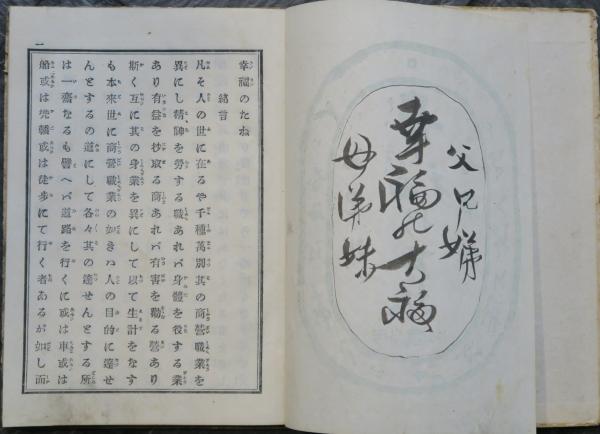 父兄娣
幸福の大福
母弟妹
幸福のたね
緒言
凡そ人の世に在るや千種萬別其の商營職業を
異にし精神を労する職あれバ身體を役する業
あり有益を抄取る商あれバ有害を勸る營あり
斯く互に其の身業を異にして以て生計をなす
も本來世に商營職業の如きハ人の目的に達せ
んとするの道にして各々其の達せんとする所
は一齋なるも譬へバ道路を行くに或は車或は
船或は馬轎或は徒歩にて行く者あるが如し而
一